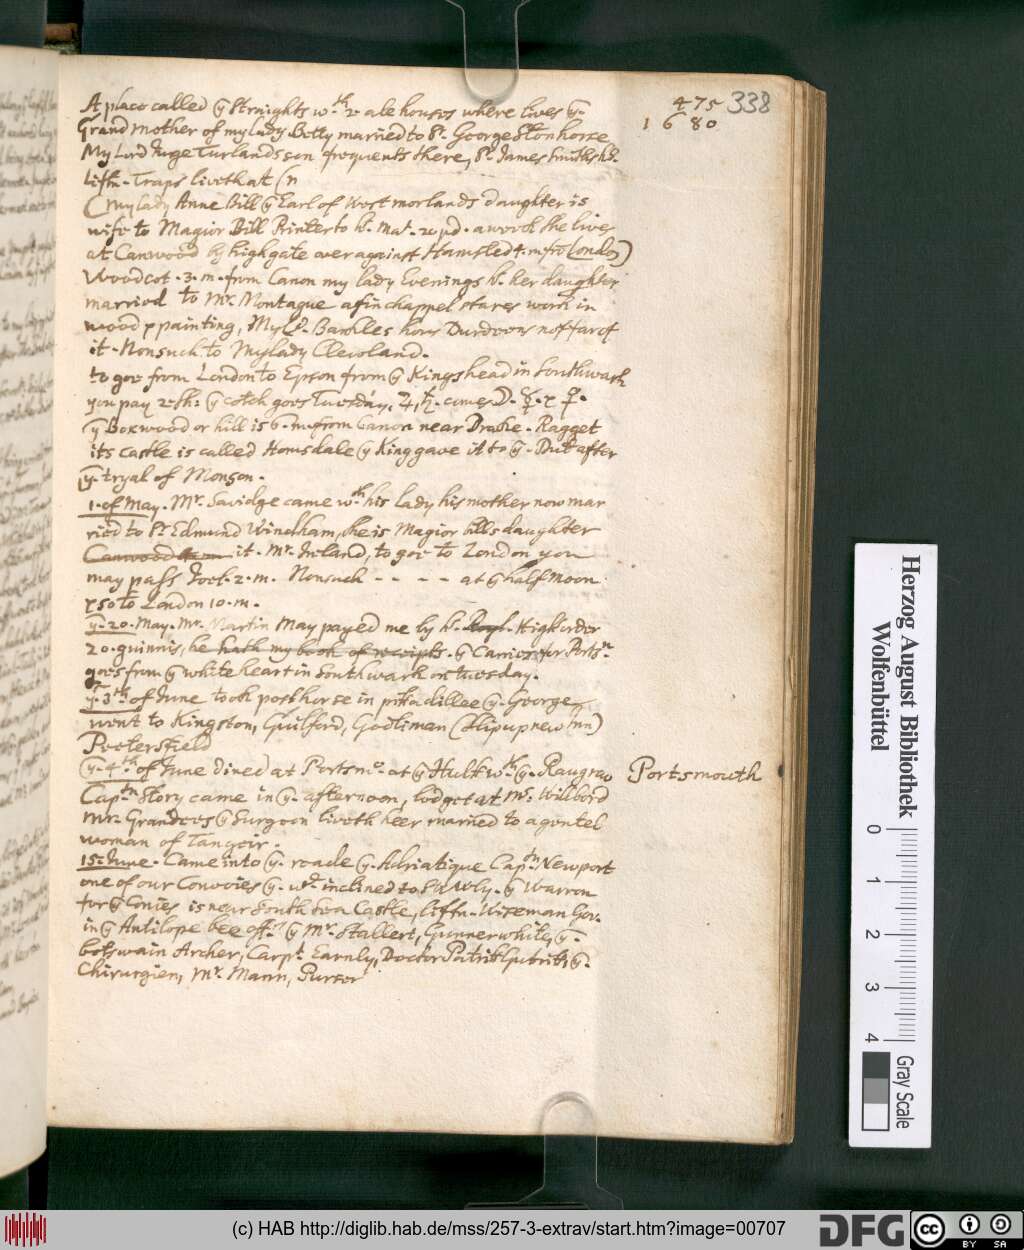 475 338
1680
A place called ye Straights wth 2 ale houses where lives ye
Grand Mother of my lady Betty married to Sr. George Stonhorse
My Lord Juge Turlands son frequents there, Sr. James Smiths
Liftn. Traps liveth at
(My lady Anne Bill ye Earl of West morlands daughter is
wife to Magior Bill Printer to his Mat. 20 pd. a week she lives
at Canwood by highgate over against Hamsted 4. m. fro London)
Woodcot. 3. m. from Canon my lady Evenings her daughter
married to Mr. Montague a fin chappel stares work in
wood & painting, My Ld. Barkles hous Durdoens not far of
it. Nonsuch to Mylady Cleveland.
to goe from London to Epson from ye Kings head in Southwark
you pay 2 sh: ye cotch goes Tuesday, ♃, ♄. comes ☽. ☿. & ♀.
ye Boxwood or hill is 6. m. from Canon near Drake. Ragget
its castle is called Homsdale ye King gave it to ye Dut after
ye tryal of Monson.
1. of May. Mr. Savidge came wth his lady his mother now mar
ried to Sr Edmund Windham, she is Magior bills daughter
Canwood it. Mr. Ireland, to goe to London you
may pass 2. m. Nonsuch - - - - at ye half Moon
& so to London 10. m.
ye 20. May. Mr. Martin May payed me by h. High order
20. guinnis, he hath my book of receipts. ye Carrier for Portsm
goes from ye white heart in Southwark on tuesday.
ye 3th of June took post horse in pikadillee ye George
went to Kingston, Guilford, Godlimen (Lipup new Inn)
Peetersfield
ye 4th of June dined at Portsmo. at ye Hulk wth ye Raugrav Portsmouth
Captn Story came in ye afternoon, lodget at Mr. Willbord
Mr. Grandoos ye Surgeon liveth heer married to a gentel
woman of Tangeir.
15. June. Came into ye roade ye Adriatique Capt. Newport
one of our Convoies ye wd. inclined to S. Wly. ye Warren
for ye Conies is near South Sea Castle, liftn. Wiseman Gov.
in ye Antilope bee off. ye Mr. Stallert, Gunner white, ye
botswain Archer, Carpt. Earnly, Doctor Patrik Gutrik, ye
Chirurgien, Mr. Mann, Purser
Herzog August Bibliothek
Wolfenbüttel
0 1 2 3 4
Gray Scale
(c) HAB http://diglib.hab.de/mss/257-3-extrav/start.htm?image=00707
DFG
cc BY SA